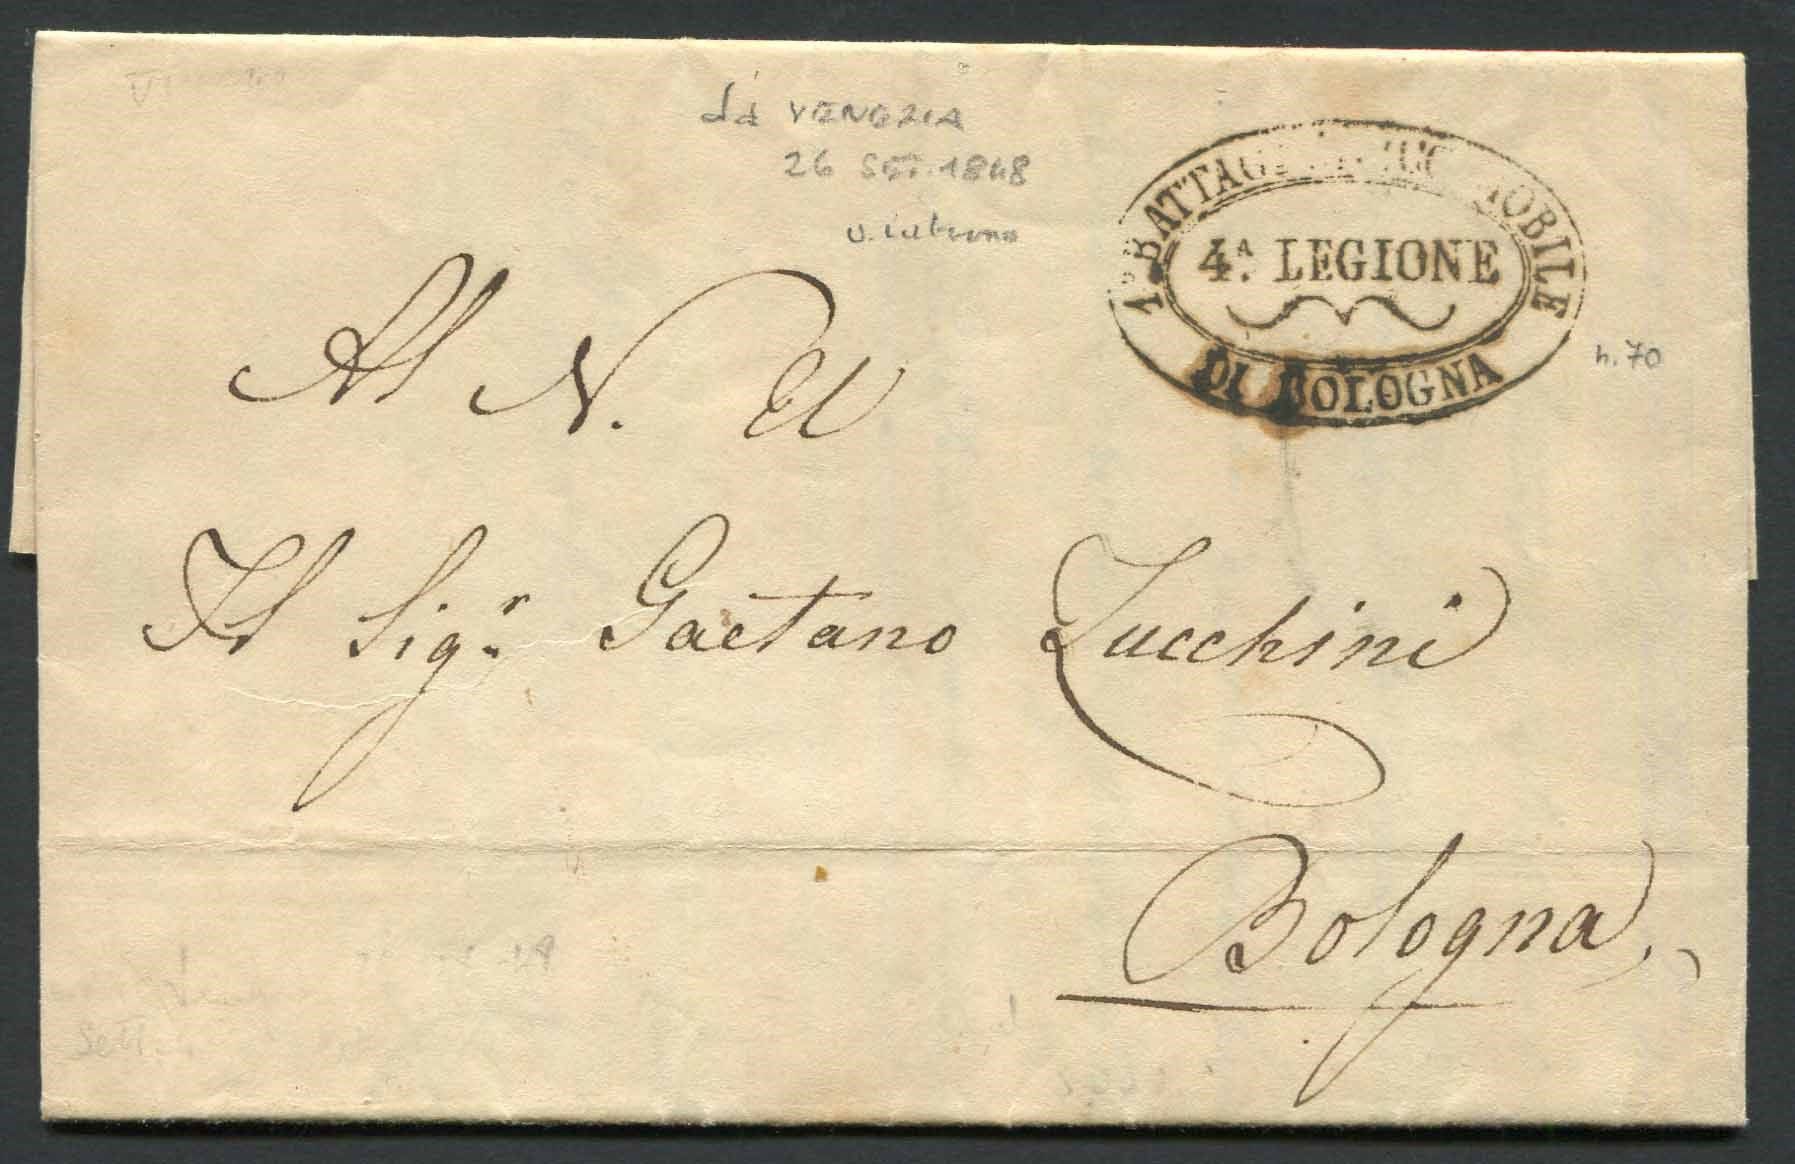 da VENEZIA
26 SET. 1848
v. interno
1° BATTAG MOBILE
4ª. LEGIONE
DI BOLOGNA
n. 70
Al N. U
Il Sigr. Gaetano Zucchini
Bologna
Sett.